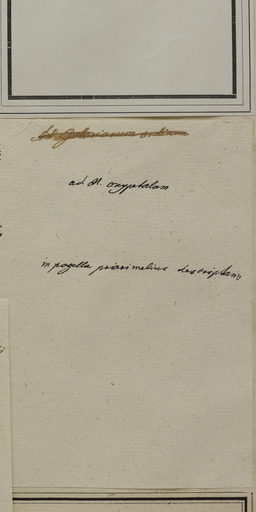 ad M. oxypetalam
in pagella priori melius descriptam